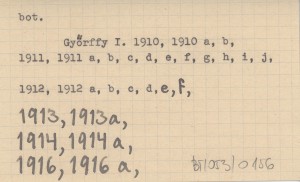 bot.
Győrffy I. 1910, 1910 a, b,
1911, 1911 a, b, c, d, e, f, g, h, i, j,
1912, 1912 a, b, c, d, e, f,
1913, 1913a,
1914, 1914 a,
1916, 1916 a,
BT/053/0156